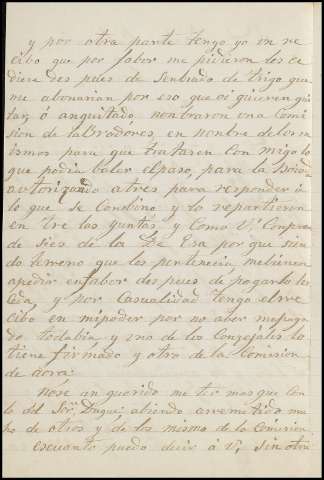 y por otra parte tengo yo un re
cibo que por fabor me pidieron les ce
diese des pues de Senbrado de trigo que
me abonarian por eso que si quieren qui
tar, ó an quitado, nonbraron una Comi
sion de labradores, en nonbre de los m
ismos para que trataran con migo lo
que podia baler el paso, para la
autorizando a tres para responder á
lo que se Conbino y lo repartieron
en tre los yuntas, y Como V. Conpren
de Sies de la De Esa por que sien
do terreno que les pertenecia, me binien
apedir en fabor des pues de pagarlo
y por Casualidad tengo el re
cibo en mi poder por no aber me paga
do todabia y uno de los Conzejales lo
tiene firmado y otro de la Comision
de aora.
Nose an querido me ter mas que con
lo del Sor. Duque abiendo arremetido mu
cho de otros y de los mismo de la Comision
es cuanto puedo decir á V, Sin otro